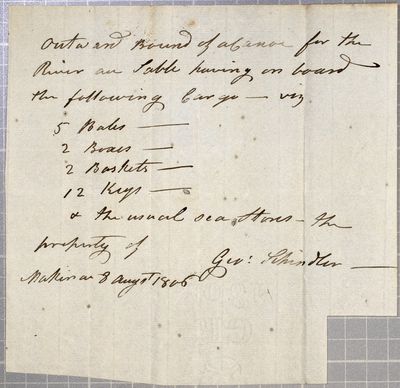 Outward Bound of a Canoe for the
River au Sable having on board
the following Cargo — viz
5 Bales —
2 Boxes —
2 Baskets —
12 Kegs —
& the usual sea Stores — the
property of
Geo: Schindler —
Makinac 8 Augst 1806